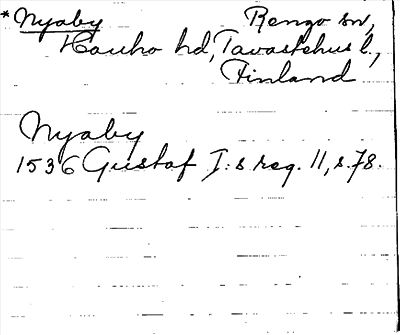 *Nyaby Rengo sn,
Hauho hd, Tavastehus l.,
Finland
Nyaby
1536 Gustaf I:s reg. 11, s. 78.